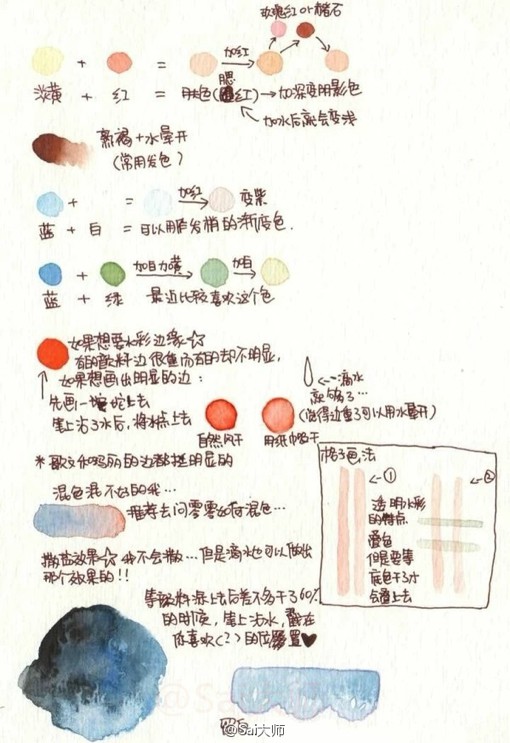 玫瑰红or赭石
加红
淡黄 + 红 = 肤色(腮红)→加深变阴影色
加水后就会变浅
熟褐+水晕开
(常用发色)
加红
变紫
蓝 + 白 = 可以用尾发梢的渐变色.
加白加黄
加白
蓝 + 绿
最近比较喜欢这个色
如果想要水彩边缘☆
有的颜料边很重而有的却不明显,
如果想画出明显的边:
先画一坨坨上去
笔上沾了水后, 将水点上去
自然风干
用纸巾擦干
←滴水
就够了…
(觉得边重了可以用水晕开)
的边都挺明显的
混色混不好的我…
推荐去问零零如何混色…
撒盐效果☆我不会撒…但是滴水也可以做出
那个效果的!!
等颜料染上去后差不多干了60%
的时候, 笔上沾水, 戳在
你喜欢(?)的位置♥
格子画法
①
②
透明水彩
的特点
叠色
但是要等
底色干了才
会叠上去
@Sai大师